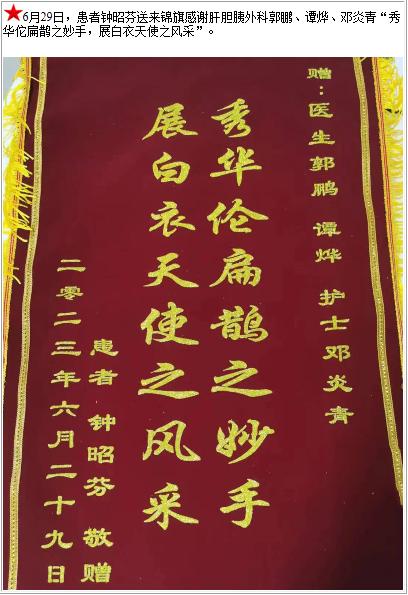 ★6月29日，患者钟昭芬送来锦旗感谢肝胆胰外科郭鹏、谭烨、邓炎青“秀
华佗扁鹊之妙手，展白衣天使之风采”。
赠：医生郭鹏 谭烨 护士邓炎青
秀华伦扁鹊之妙手
展白衣天使之风采
患者 钟昭芬 敬赠
二零二三年六月二十九日